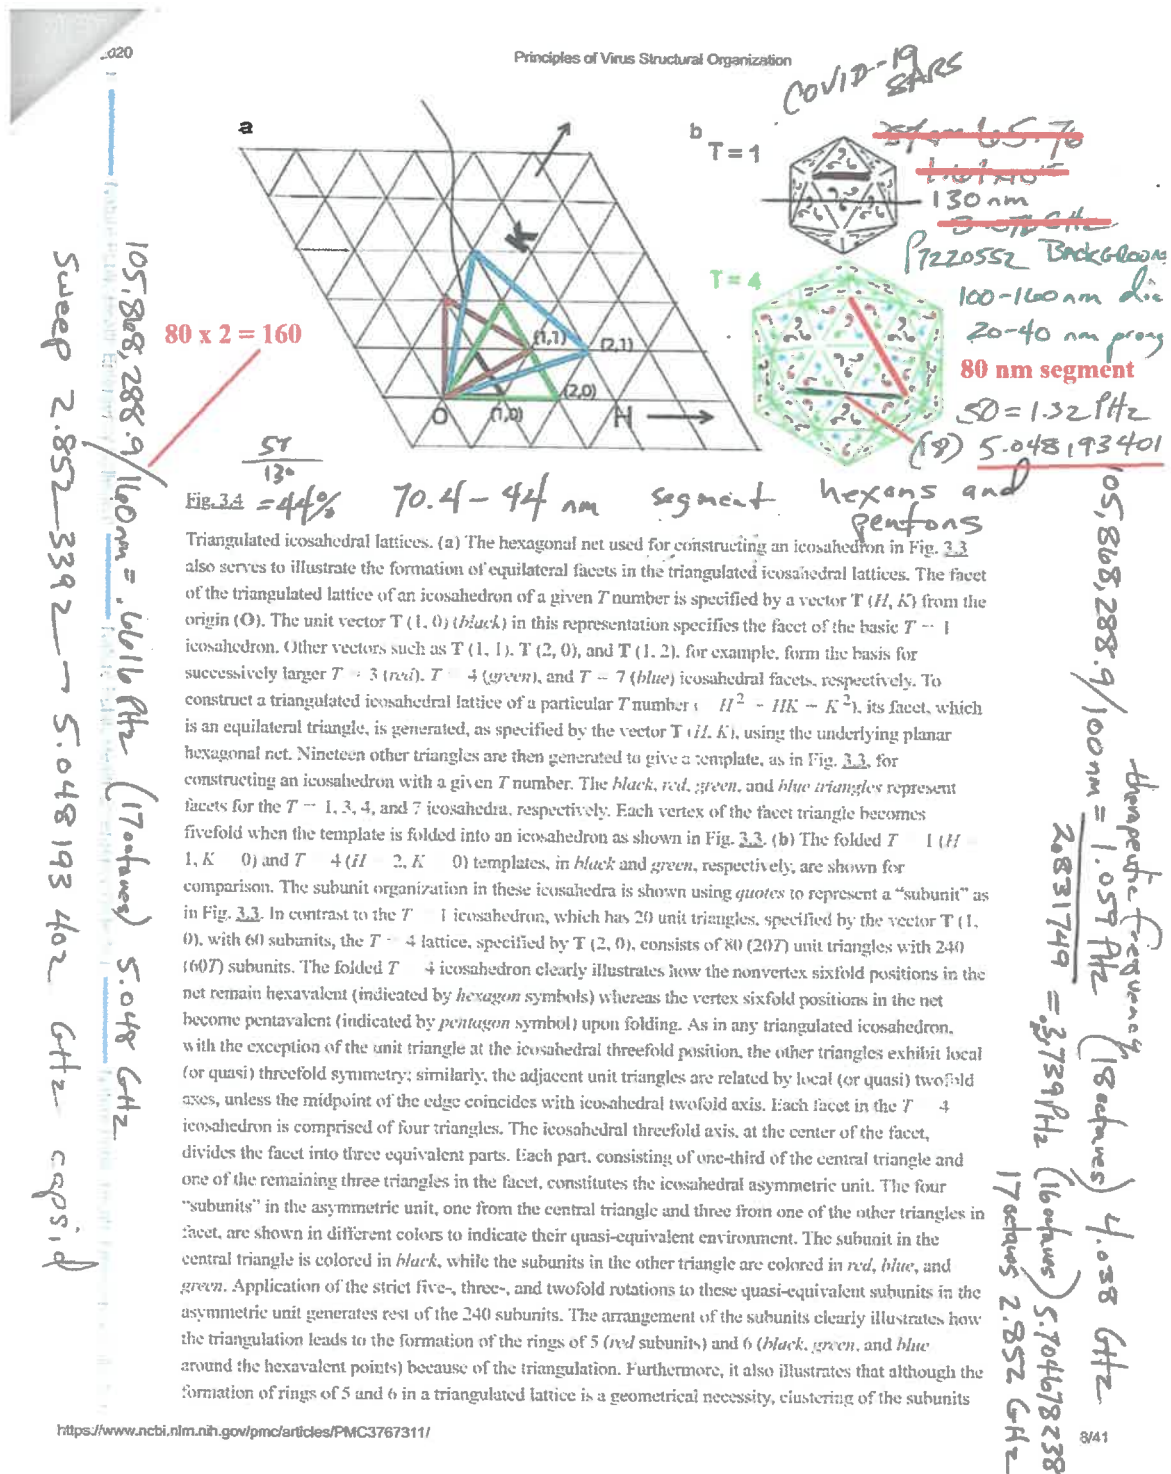 2020
Principles of Virus Structural Organization
COVID-19
SARS
a
b
T = 1
130 nm
P7220552 BACKGROUND
100-160 nm dia
20-40 nm prong
80 nm segment
T = 4
50 = 1.32 PHz
(18) 5.048193401
K
(1,1)
(2,1)
(2,0)
(1,0)
O
H
80 x 2 = 160
57
130
Fig.3.4 = 44% 70.4-44 nm segment hexons and
pentons
Triangulated icosahedral lattices. (a) The hexagonal net used for constructing an icosahedron in Fig. 3.3
also serves to illustrate the formation of equilateral facets in the triangulated icosahedral lattices. The facet
of the triangulated lattice of an icosahedron of a given T number is specified by a vector T (H, K) from the
origin (O). The unit vector T (1, 0) (black) in this representation specifies the facet of the basic T − 1
icosahedron. Other vectors such as T (1, 1). T (2, 0), and T (1, 2). for example, form the basis for
successively larger T 3 (red). T 4 (green), and T − 7 (blue) icosahedral facets, respectively. To
construct a triangulated icosahedral lattice of a particular T number ( H² − HK − K²), its facet, which
is an equilateral triangle, is generated, as specified by the vector T (H, K), using the underlying planar
hexagonal net. Nineteen other triangles are then generated to give a template, as in Fig. 3.3, for
constructing an icosahedron with a given T number. The black, red, green, and blue triangles represent
facets for the T − 1, 3, 4, and 7 icosahedra, respectively. Each vertex of the facet triangle becomes
fivefold when the template is folded into an icosahedron as shown in Fig. 3.3. (b) The folded T 1 (H
1, K 0) and T 4 (H 2, K 0) templates, in black and green, respectively, are shown for
comparison. The subunit organization in these icosahedra is shown using quotes to represent a “subunit” as
in Fig. 3.3. In contrast to the T 1 icosahedron, which has 20 unit triangles, specified by the vector T (1,
0), with 60 subunits, the T 4 lattice, specified by T (2, 0), consists of 80 (20T) unit triangles with 240
(60T) subunits. The folded T 4 icosahedron clearly illustrates how the nonvertex sixfold positions in the
net remain hexavalent (indicated by hexagon symbols) whereas the vertex sixfold positions in the net
become pentavalent (indicated by pentagon symbol) upon folding. As in any triangulated icosahedron,
with the exception of the unit triangle at the icosahedral threefold position, the other triangles exhibit local
(or quasi) threefold symmetry; similarly, the adjacent unit triangles are related by local (or quasi) twofold
axes, unless the midpoint of the edge coincides with icosahedral twofold axis. Each facet in the T 4
icosahedron is comprised of four triangles. The icosahedral threefold axis, at the center of the facet,
divides the facet into three equivalent parts. Each part, consisting of one-third of the central triangle and
one of the remaining three triangles in the facet, constitutes the icosahedral asymmetric unit. The four
“subunits” in the asymmetric unit, one from the central triangle and three from one of the other triangles in
facet, are shown in different colors to indicate their quasi-equivalent environment. The subunit in the
central triangle is colored in black, while the subunits in the other triangle are colored in red, blue, and
green. Application of the strict five-, three-, and twofold rotations to these quasi-equivalent subunits in the
asymmetric unit generates rest of the 240 subunits. The arrangement of the subunits clearly illustrates how
the triangulation leads to the formation of the rings of 5 (red subunits) and 6 (black, green, and blue
around the hexavalent points) because of the triangulation. Furthermore, it also illustrates that although the
formation of rings of 5 and 6 in a triangulated lattice is a geometrical necessity, clustering of the subunits
105,868,288.9/160nm = .6616 PHz (17octaves) 5.048 GHz
Sweep 2.852-3392 → 5.048193402 GHz capsid
therapeutic frequency
105,868,288.9/100nm = 1.059 PHz (18 octaves) 4.038 GHz
2.831749 = .3739 PHz (16 octaves) 5.704678238
17 octaves 2.852 GHz
https://www.ncbi.nlm.nih.gov/pmc/articles/PMC3767311/
8/41